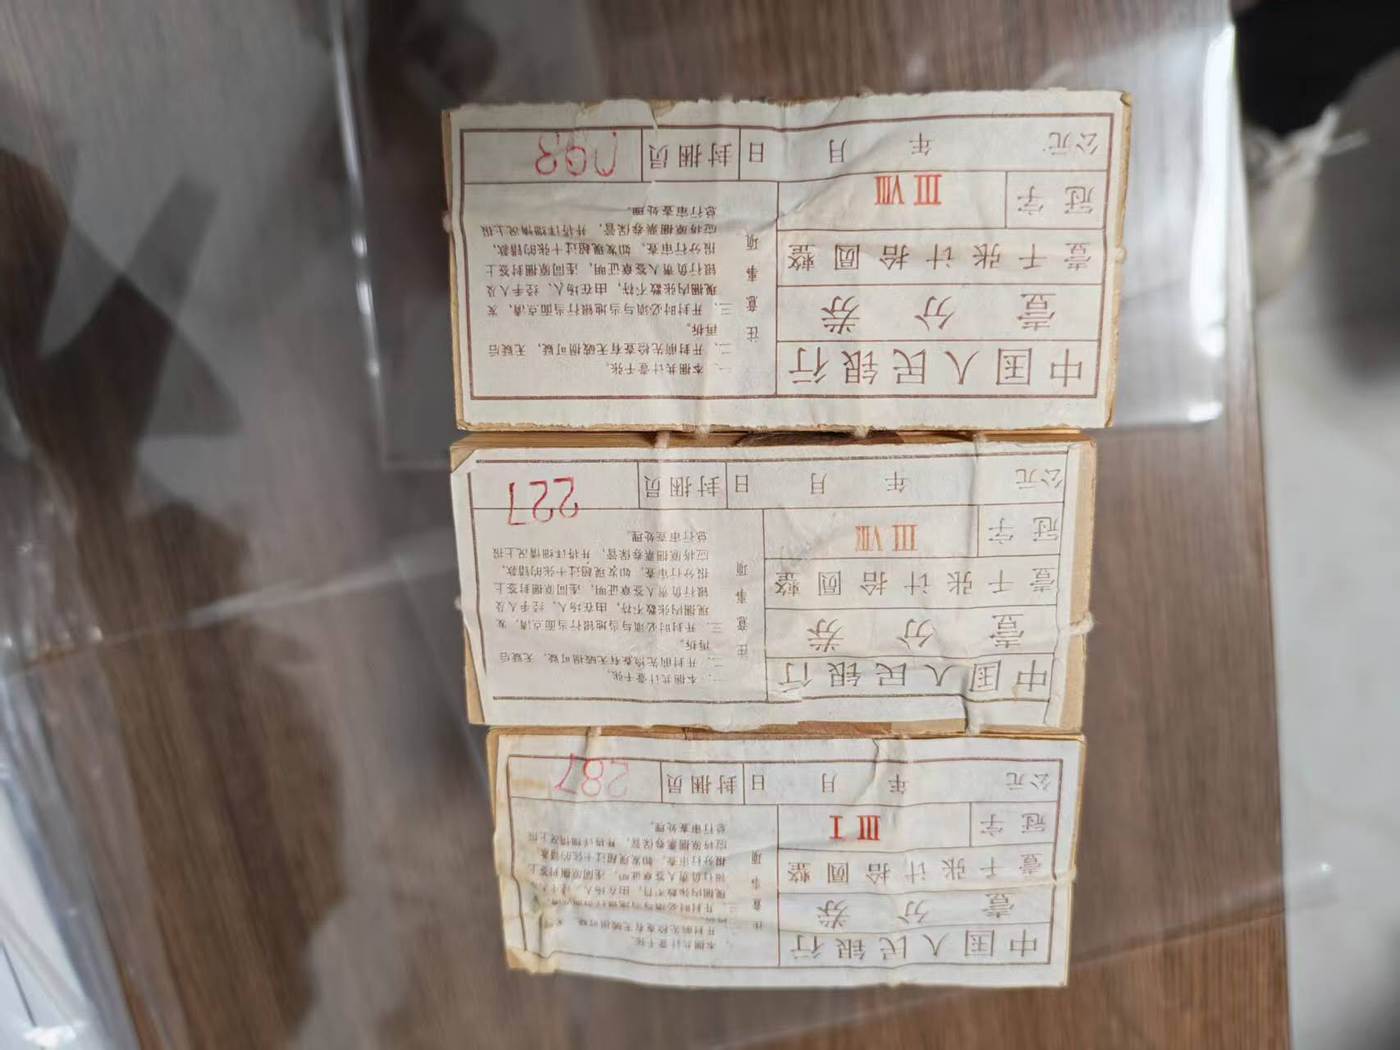 中国人民银行
壹分券
壹千张计拾圆整
冠字 III I
公元 年 月 日 封捆员 287
注意事项
一、本捆共计壹千张。
二、开封前先检查有无破损可疑，无疑后
再拆。
三、开封时必须与当地银行当面点清，发
现捆内张数不符，由在场人、经手人及
银行负责人签章证明，连同原捆封签上
报分行审查，如发现超过十张的错款，
应将原捆票卷保管，并将详细情况上报
总行审查处理。
中国人民银行
壹分券
壹千张计拾圆整
冠字 III VIII
公元 年 月 日 封捆员 227
注意事项
一、本捆共计壹千张。
二、开封前先检查有无破损可疑，无疑后
再拆。
三、开封时必须与当地银行当面点清，发
现捆内张数不符，由在场人、经手人及
银行负责人签章证明，连同原捆封签上
报分行审查，如发现超过十张的错款，
应将原捆票卷保管，并将详细情况上报
总行审查处理。
中国人民银行
壹分券
壹千张计拾圆整
冠字 III VIII
公元 年 月 日 封捆员 093
注意事项
一、本捆共计壹千张。
二、开封前先检查有无破损可疑，无疑后
再拆。
三、开封时必须与当地银行当面点清，发
现捆内张数不符，由在场人、经手人及
银行负责人签章证明，连同原捆封签上
报分行审查，如发现超过十张的错款，
应将原捆票卷保管，并将详细情况上报
总行审查处理。